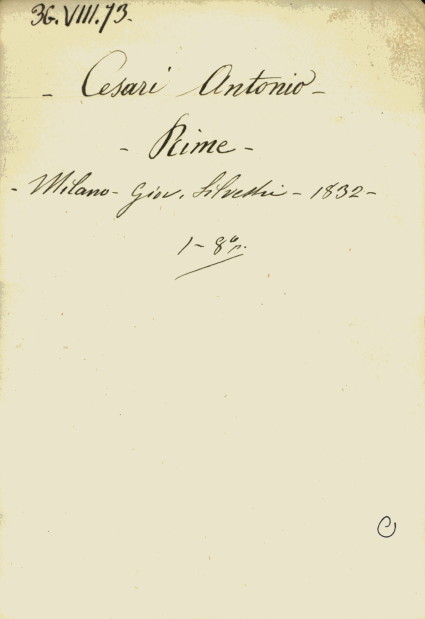 36.VIII.73.
- Cesari Antonio -
- Rime -
- Milano - Giov. Silvestri - 1832 -
1 - 8º p.
C